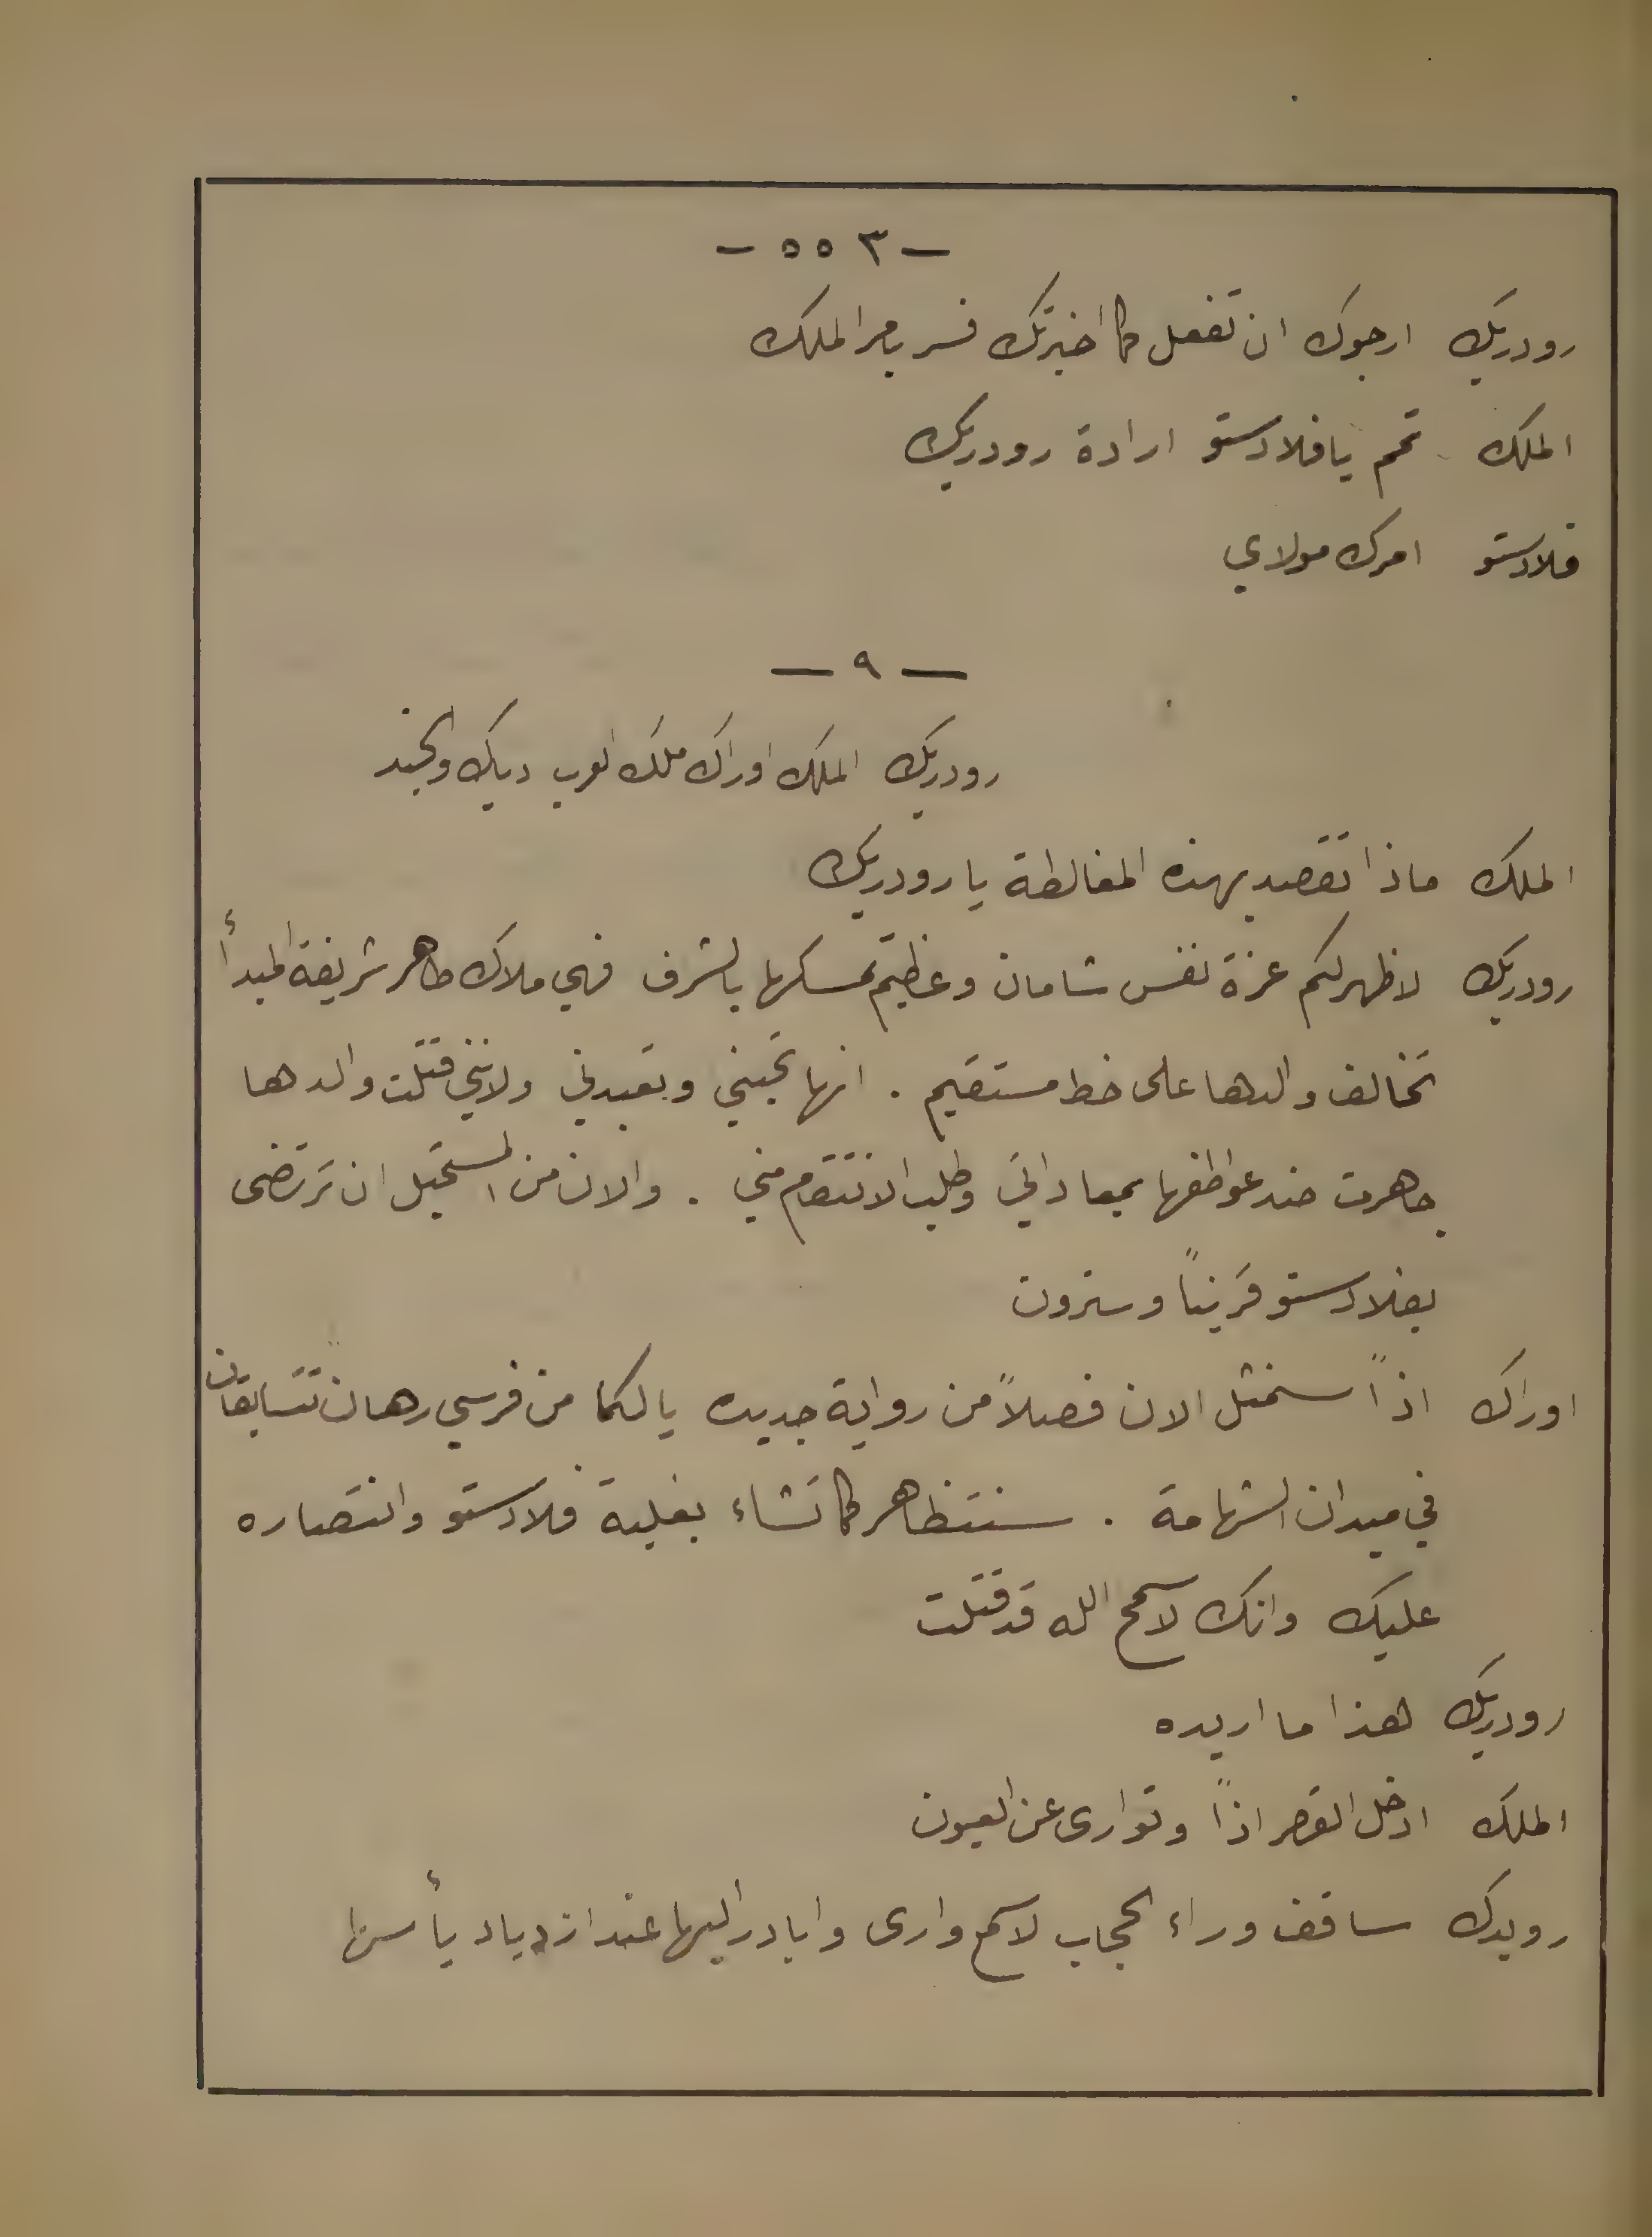 — ٥٥٣ —
رودريك ارجوك ان تفعل كما اخبرتك فسر بامر الملك
الملك تمم يا فلادستو ارادة رودريك
فلادستو امرك مولاي
— ٩ —
رودريك الملك اوراك ملك العرب دياك والجند
الملك ماذا تقصد بهذه المغالطة يا رودريك
رودريك لاظهر لكم عزة نفس شامان وعظيم تمسكها بالشرف فهي ملاك طاهر شريفة المبدأ
تخالف والدها على خط مستقيم . انها تحبني وتعبدني ولانني قتلت والدها
جاهرت ضد عواطفها بمعاداتي وطلب الانتقام مني . والان من المستحيل ان ترتضى
بفلادستو قريناً وسترون
اوراك اذاً سنمثل الان فصلاً من رواية جديده يا لكما من فرسي رهان تتسابقان
في ميدان الشهامة . سنتظاهر كما تشاء بغلبة فلادستو وانتصاره
عليك وانك لا سمح الله قد قتلت
رودريك هذا ما اريده
الملك ادخل القصر اذاً وتوارى عن العيون
رويدك ساقف وراء الحجاب لاسمع وارى وابادر اليها عند ازدياد يأسها